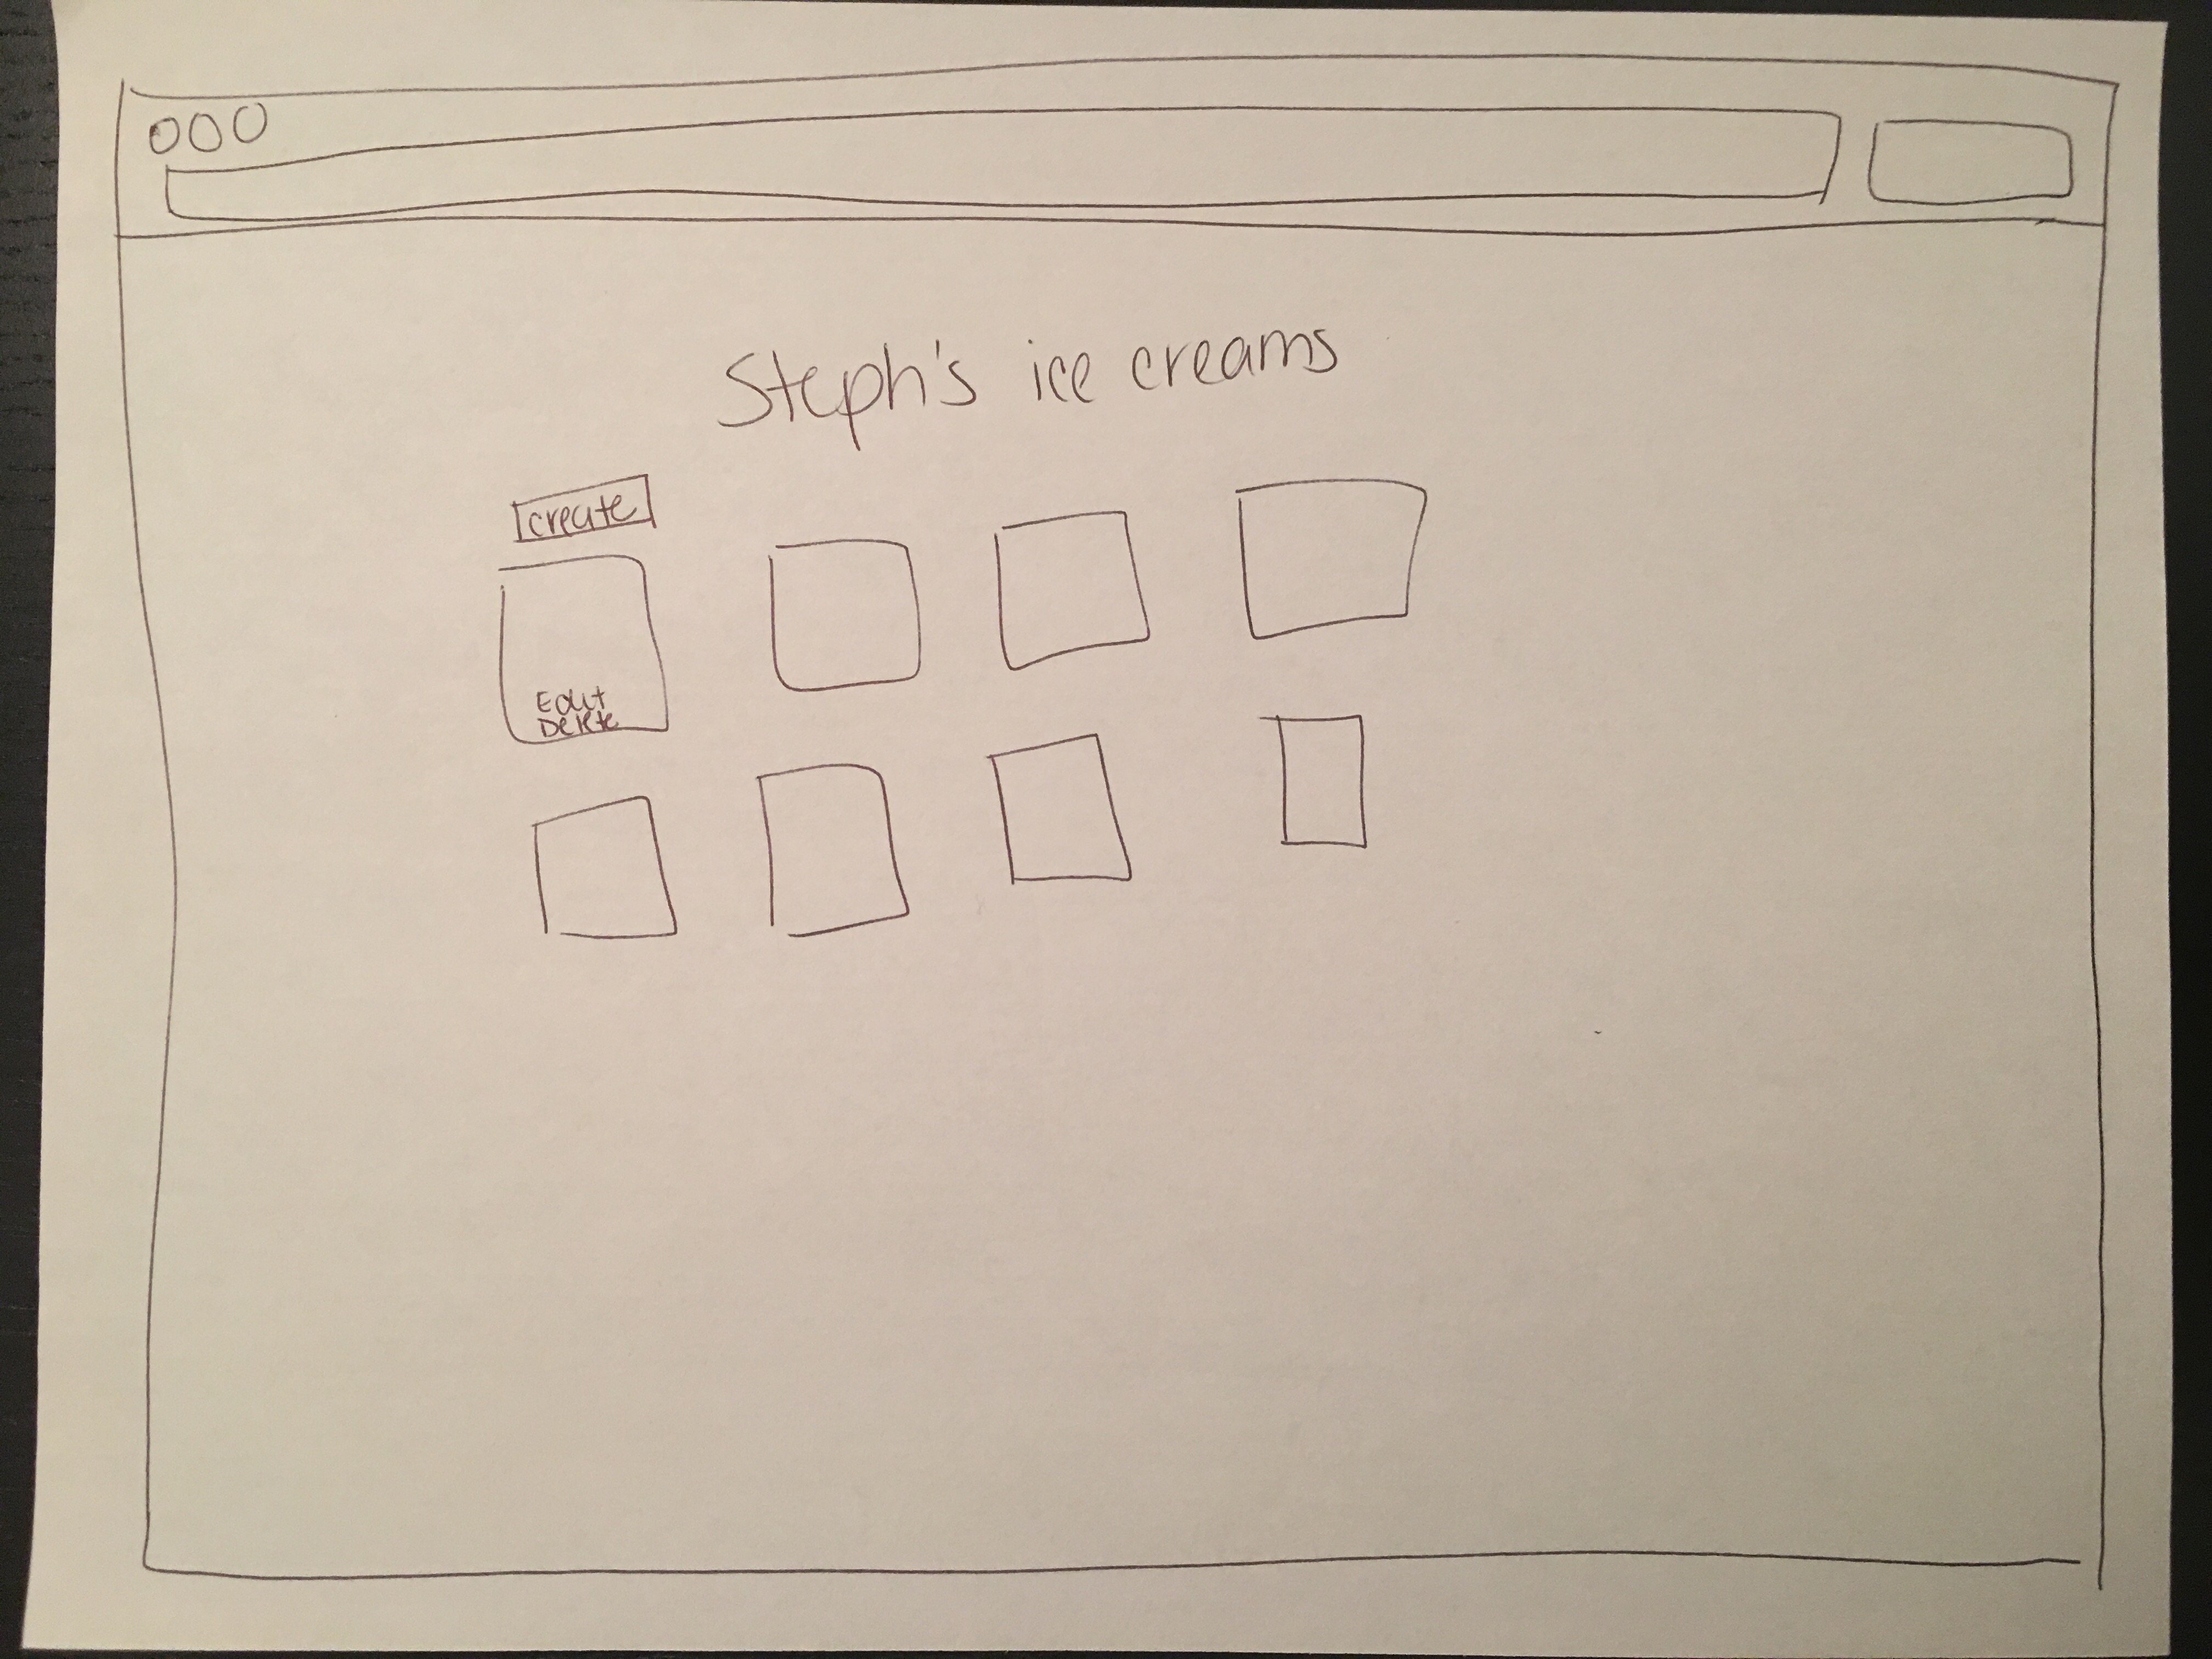 Steph's ice creams
create
Edit
Delete